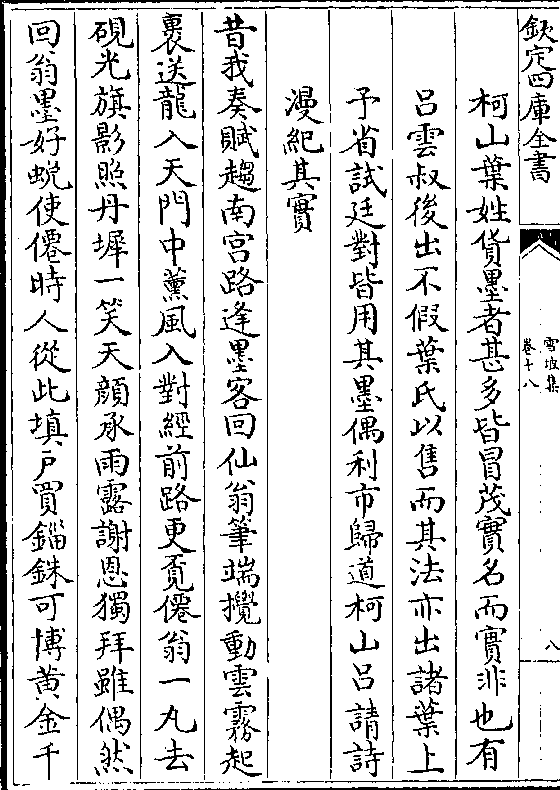 欽定四庫全書
雪坡集
卷十八
八
柯山葉姓貨墨者甚多皆冒茂實名而實非也有
呂雲叔後出不假葉氏以售而其法亦出諸葉上
予省試廷對皆用其墨偶利市歸道柯山呂請詩
漫紀其實
昔我奏賦趨南宫路逢墨客回仙翁筆端攪動雲霧起
裹送龍入天門中薰風入對經前路更覔僊翁一丸去
硯光旗影照丹墀一笑天顔承雨露謝恩獨拜雖偶然
回翁墨好蜕使僊時人從此填戶買錙銖可博黄金千